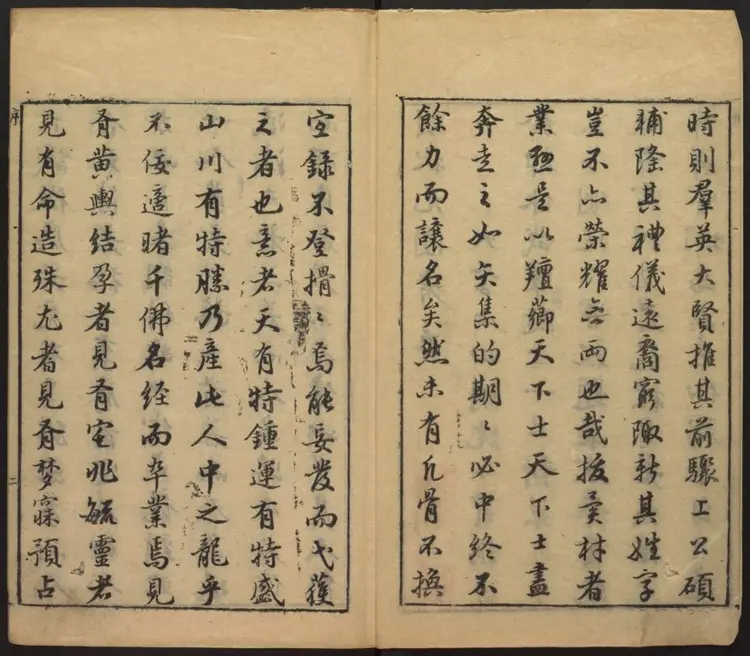 時則羣英大賢推其前驟王公碩
輔隆其禮儀遠裔窮陬新其姓字
豈不亦榮耀無兩也哉拔異材者
業是以羶薌天下士天下士盡
奔走之如矢集的期〻必中終不
餘力而讓名矣然未有凡骨不換
錄不登搰〻焉能妄發而弋獲
之者也意者天有特鍾運有特盛
山川有特勝乃產此人中之龍乎
不佞適睹千佛名經而卒業焉見
有黃輿結孕者見有宅兆毓靈者
見有命造殊尤者見有夢寐預占
序
二